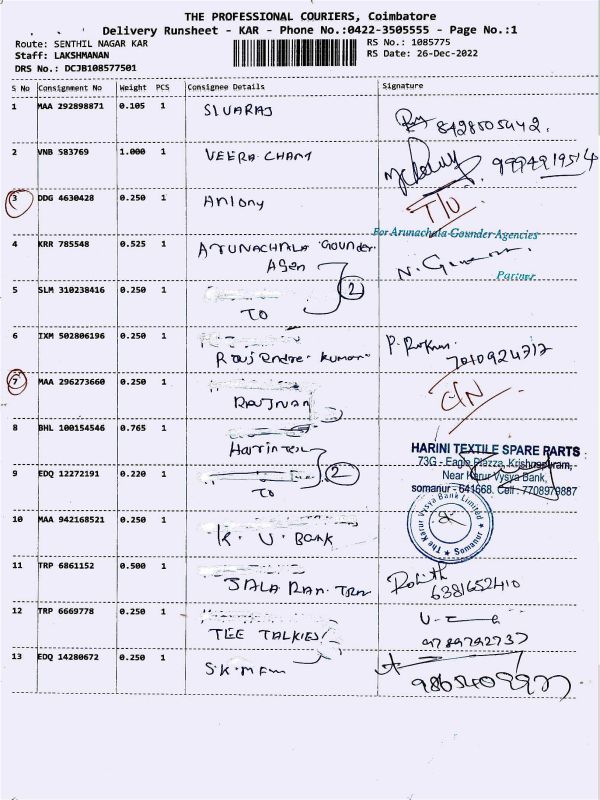 THE PROFESSIONAL COURIERS, Coimbatore
Delivery Runsheet - KAR - Phone No.:0422-3505555 - Page No.:1
Route: SENTHIL NAGAR KAR
RS No.: 1085775
Staff: LAKSHMANAN
RS Date: 26-Dec-2022
DRS No.: DCJB108577501
S No Consignment No Weight PCS Consignee Details Signature
1 MAA 292898871 0.105 1 SIVARAJ
8428505442.
2 VNB 583769 1.000 1 VEERA CHAMY 9994919514
3 DDG 4630428 0.250 1 Antony
For Arunachala Gounder Agencies
4 KRR 785548 0.525 1 ARUNACHALA Gounder
Agen
Partner
5 SLM 310238416 0.250 1 2
TO
6 IXM 502806196 0.250 1
Rajendra Kumar
7 MAA 296273660 0.250 1
C/N
8 BHL 100154546 0.765 1
HARINI TEXTILE SPARE PARTS
73G - Eagle Plazza, Krishnapuram,
Near Karur Vysya Bank,
somanur - 641668. Cell : 7708979887
9 EDQ 12272191 0.220 1 2
TO
The Karur Vysya Bank Limited
Somanur
10 MAA 942168521 0.250 1
K. V. BANK
11 TRP 6861152 0.500 1
JALA RAM
Rohith
6381652410
12 TRP 6669778 0.250 1
TEE TALKIES
9789792737
13 EDQ 14280672 0.250 1
S.K.M